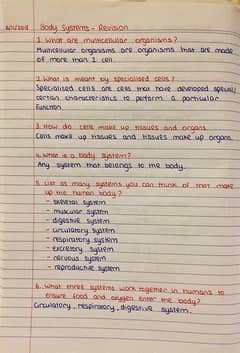 Body Systems - Revision
1. What are multicellular organisms?
Multicellular organisms are organisms that are made
of more than 1 cell.
2. What is meant by specialised cells?
Specialised cells are cells that have developed special/
certain characteristics to perform a particular
function.
3. How do cells make up tissues and organs.
Cells make up tissues and tissues make up organs.
4. What is a body system?
Any system that belongs to the body.
5. List as many systems you can think of that make
up the human body?
- skeletal system
- muscular system
- digestive system
- circulatory system
- respiratory system
- excretory system
- nervous system
- reproductive system
6. What three systems work together in humans to
ensure food and oxygen enter the body?
Circulatory, respiratory, digestive system.